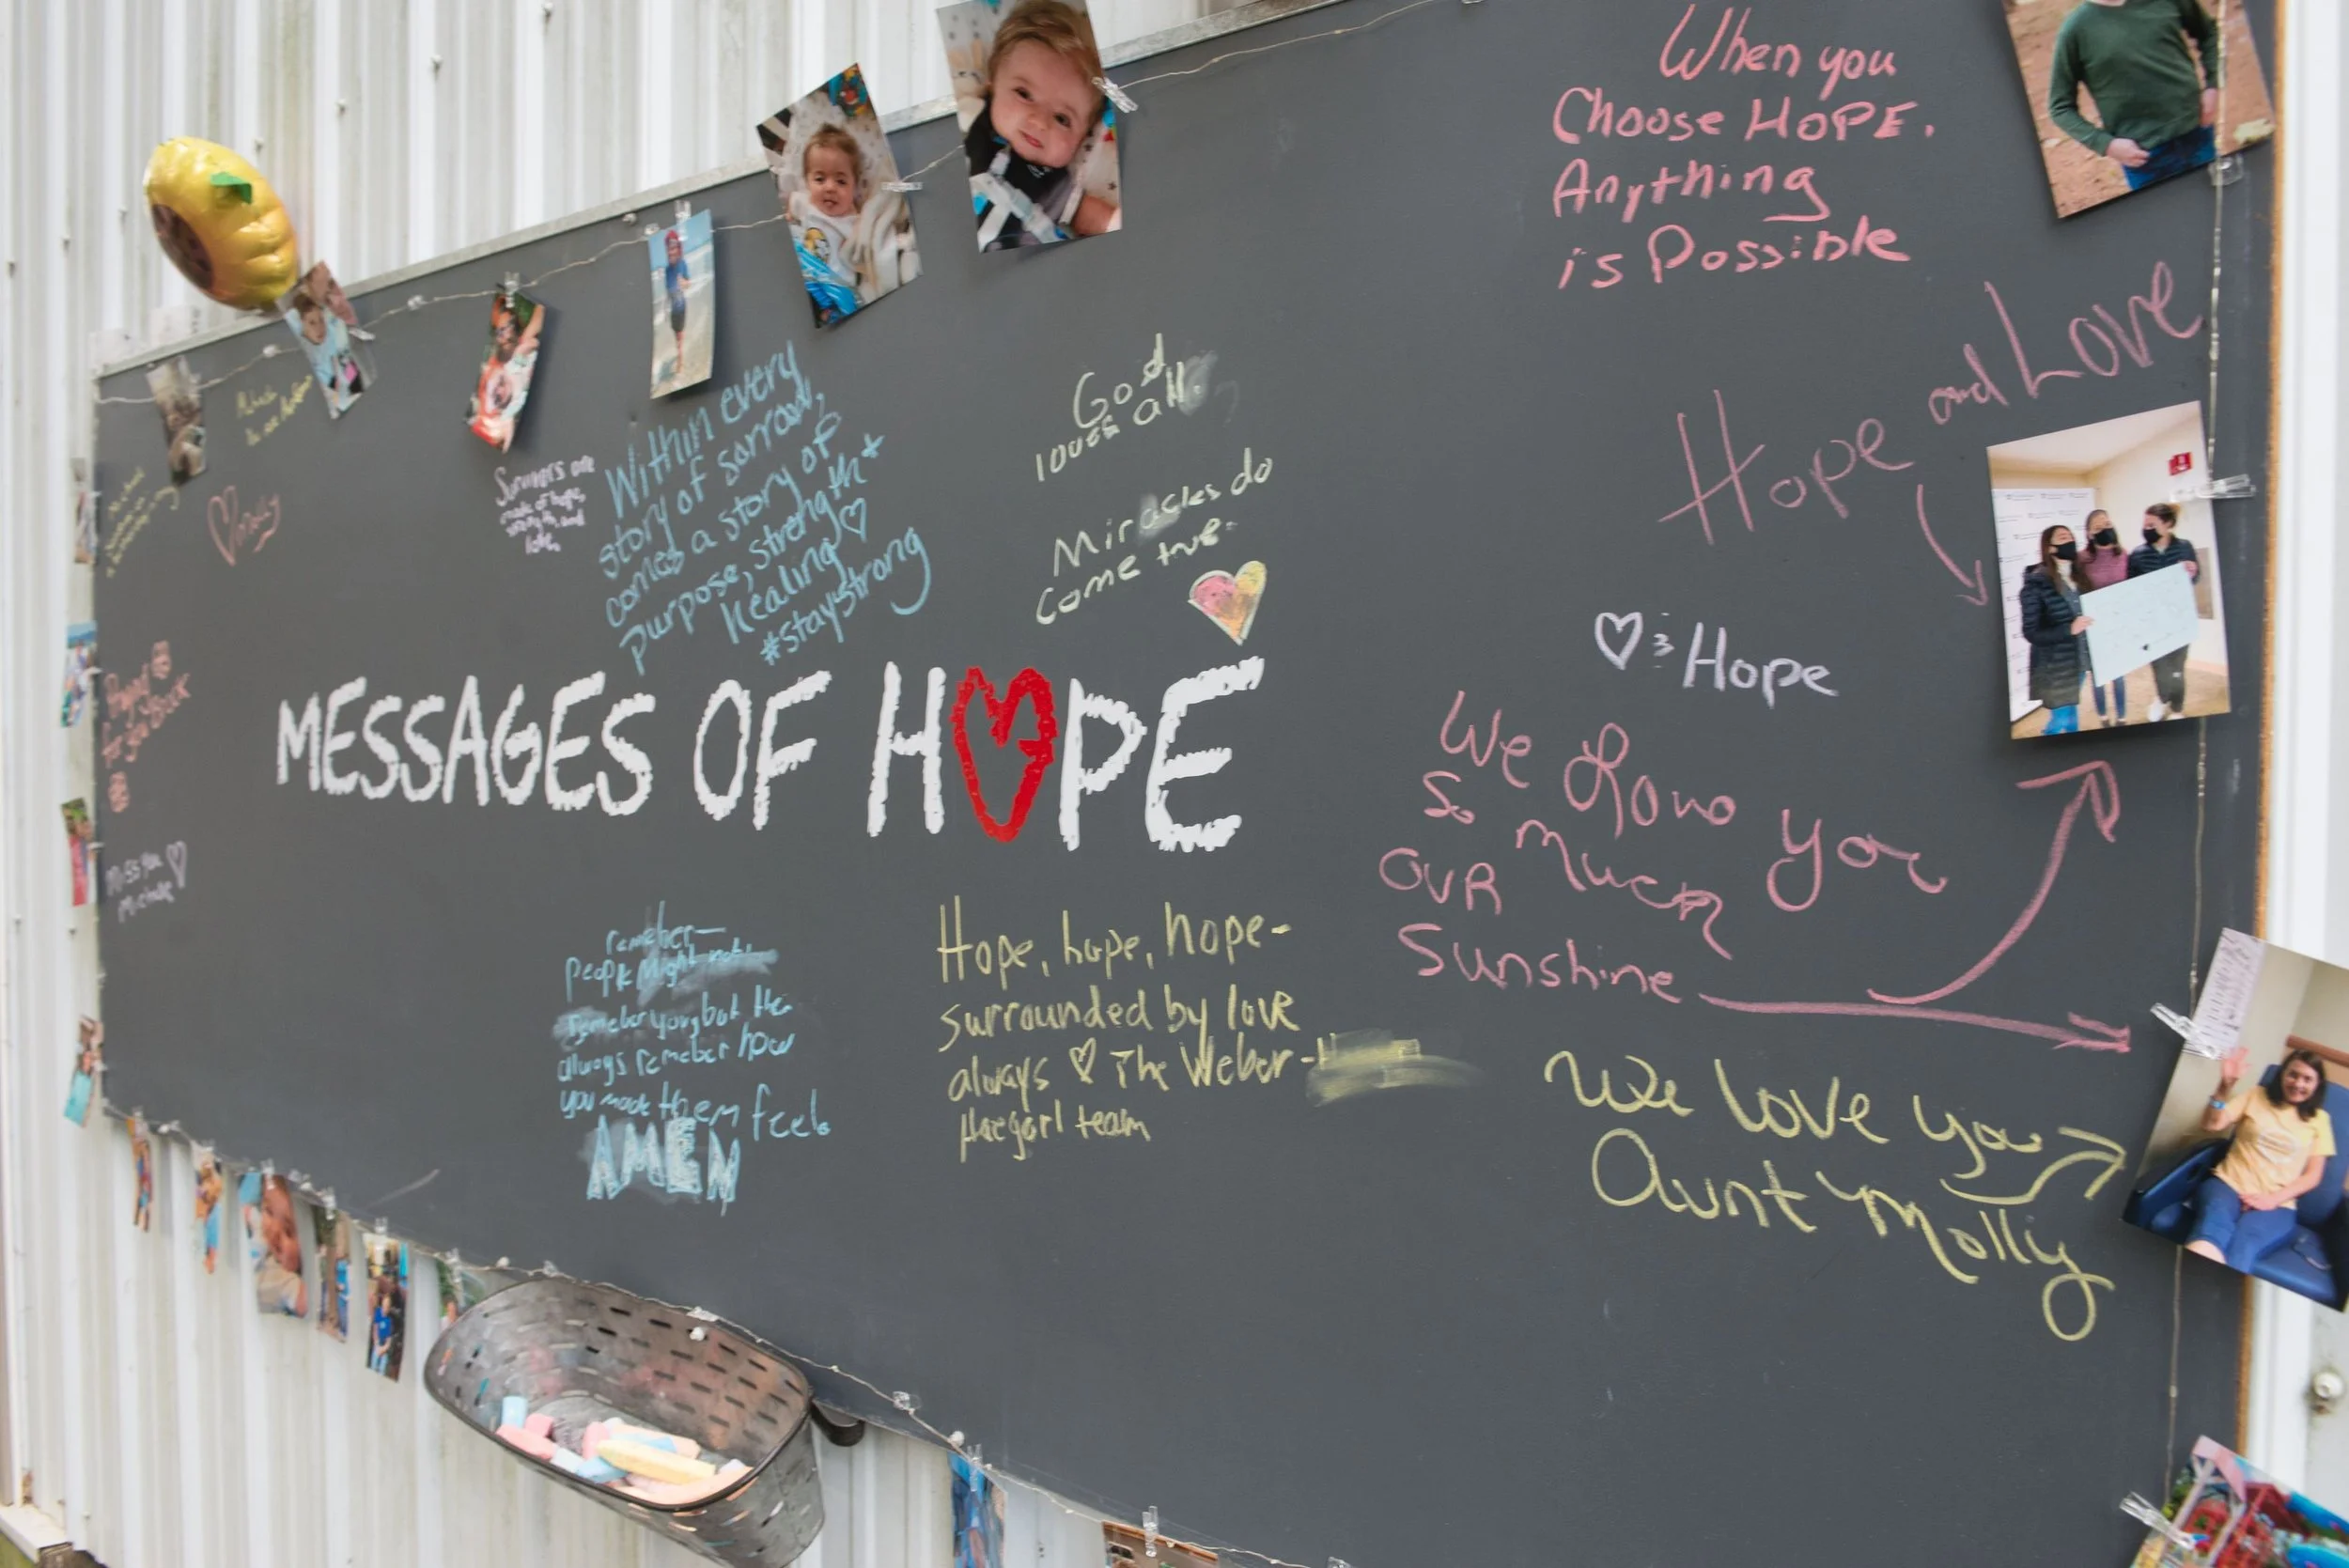 MESSAGES OF HOPE
When you
Choose HOPE.
Anything
is Possible
Hope and Love
Within every
story of sorrow,
comes a story of
purpose, strength +
healing ♡
#staystrong
Survivors are
made of hope,
strength, and
love.
God
loves all.
Miracles do
come true.
♡ : Hope
We Love you
So Much
OUR
Sunshine
We love you
Aunt Molly
remeber—
people might not
remeber you, but the
always remeber how
you made them feel.
AMEN
Hope, hope, hope-
surrounded by love
always ♡ The Weber-
team
Miss you ♡
Michelle